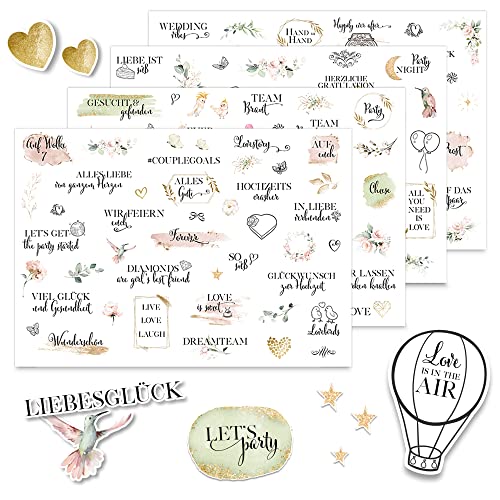 WEDDING
vibes
HAND IN
HAND
Happily ever after
LIEBE IST
süß
HERZLICHE
GRATULATION
Party
NIGHT
GESUCHT &
gefunden
TEAM
Braut
Party
TEAM
Auf Wolke
7
#COUPLEGOALS
Lovestory
AUF
euch
ALLES LIEBE
von ganzem Herzen
ALLES
Gute
HOCHZEITS
crasher
Cheese
WIR FEIERN
euch
IN LIEBE
verbunden
ALL
YOU
NEED IS
LOVE
LET'S GET
the party started
Forever
SO
süß
DIAMONDS
are girl's best friend
GLÜCKWUNSCH
zur Hochzeit
VIEL GLÜCK
und Gesundheit
LIVE
LOVE
LAUGH
LOVE
is sweet
Lovebirds
Wunderschön
DREAMTEAM
LIEBESGLÜCK
LET'S
party
Love
IS IN THE
AIR